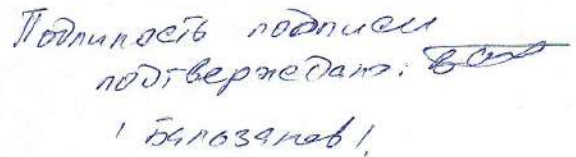 Подлиность подписи
подтверждаю:
/ Балозанов /